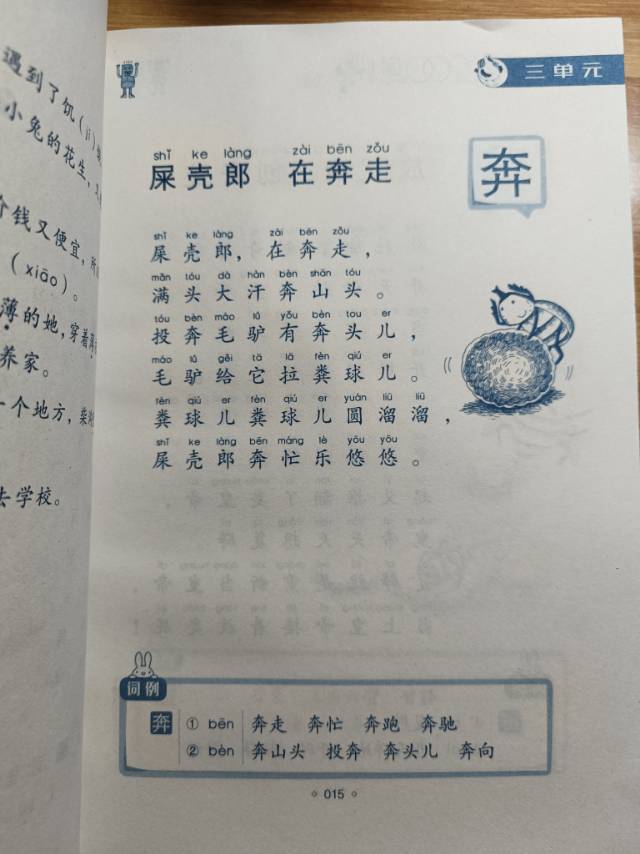 遇到了饥(jī)
小兔的花生，
钱又便宜，
(xiāo)。
薄的她，穿着
养家。
一个地方，
去学校。
三单元
shǐ ke làng zài bēn zǒu
屎壳郎 在奔走
奔
shǐ ke làng zài bēn zǒu
屎壳郎，在奔走，
mǎn tóu dà hàn bèn shān tóu
满头大汗奔山头。
tóu bèn máo lǘ yǒu bèn tou er
投奔毛驴有奔头儿，
máo lǘ gěi tā lā fèn qiú er
毛驴给它拉粪球儿。
fèn qiú er fèn qiú er yuán liū liū
粪球儿粪球儿圆溜溜，
shǐ ke làng bēn máng lè yōu yōu
屎壳郎奔忙乐悠悠。
词例
奔 ① bēn 奔走 奔忙 奔跑 奔驰
② bèn 奔山头 投奔 奔头儿 奔向
015